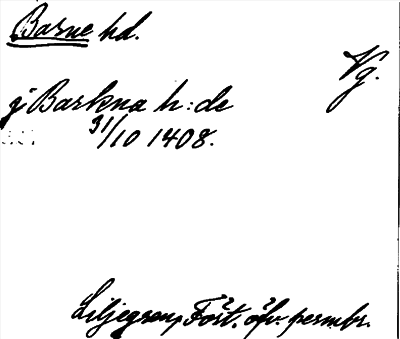 Barne hd.
Vg.
j Barkna h:de
31/10 1408.
Liljegren, Fört. öfv. permbr.